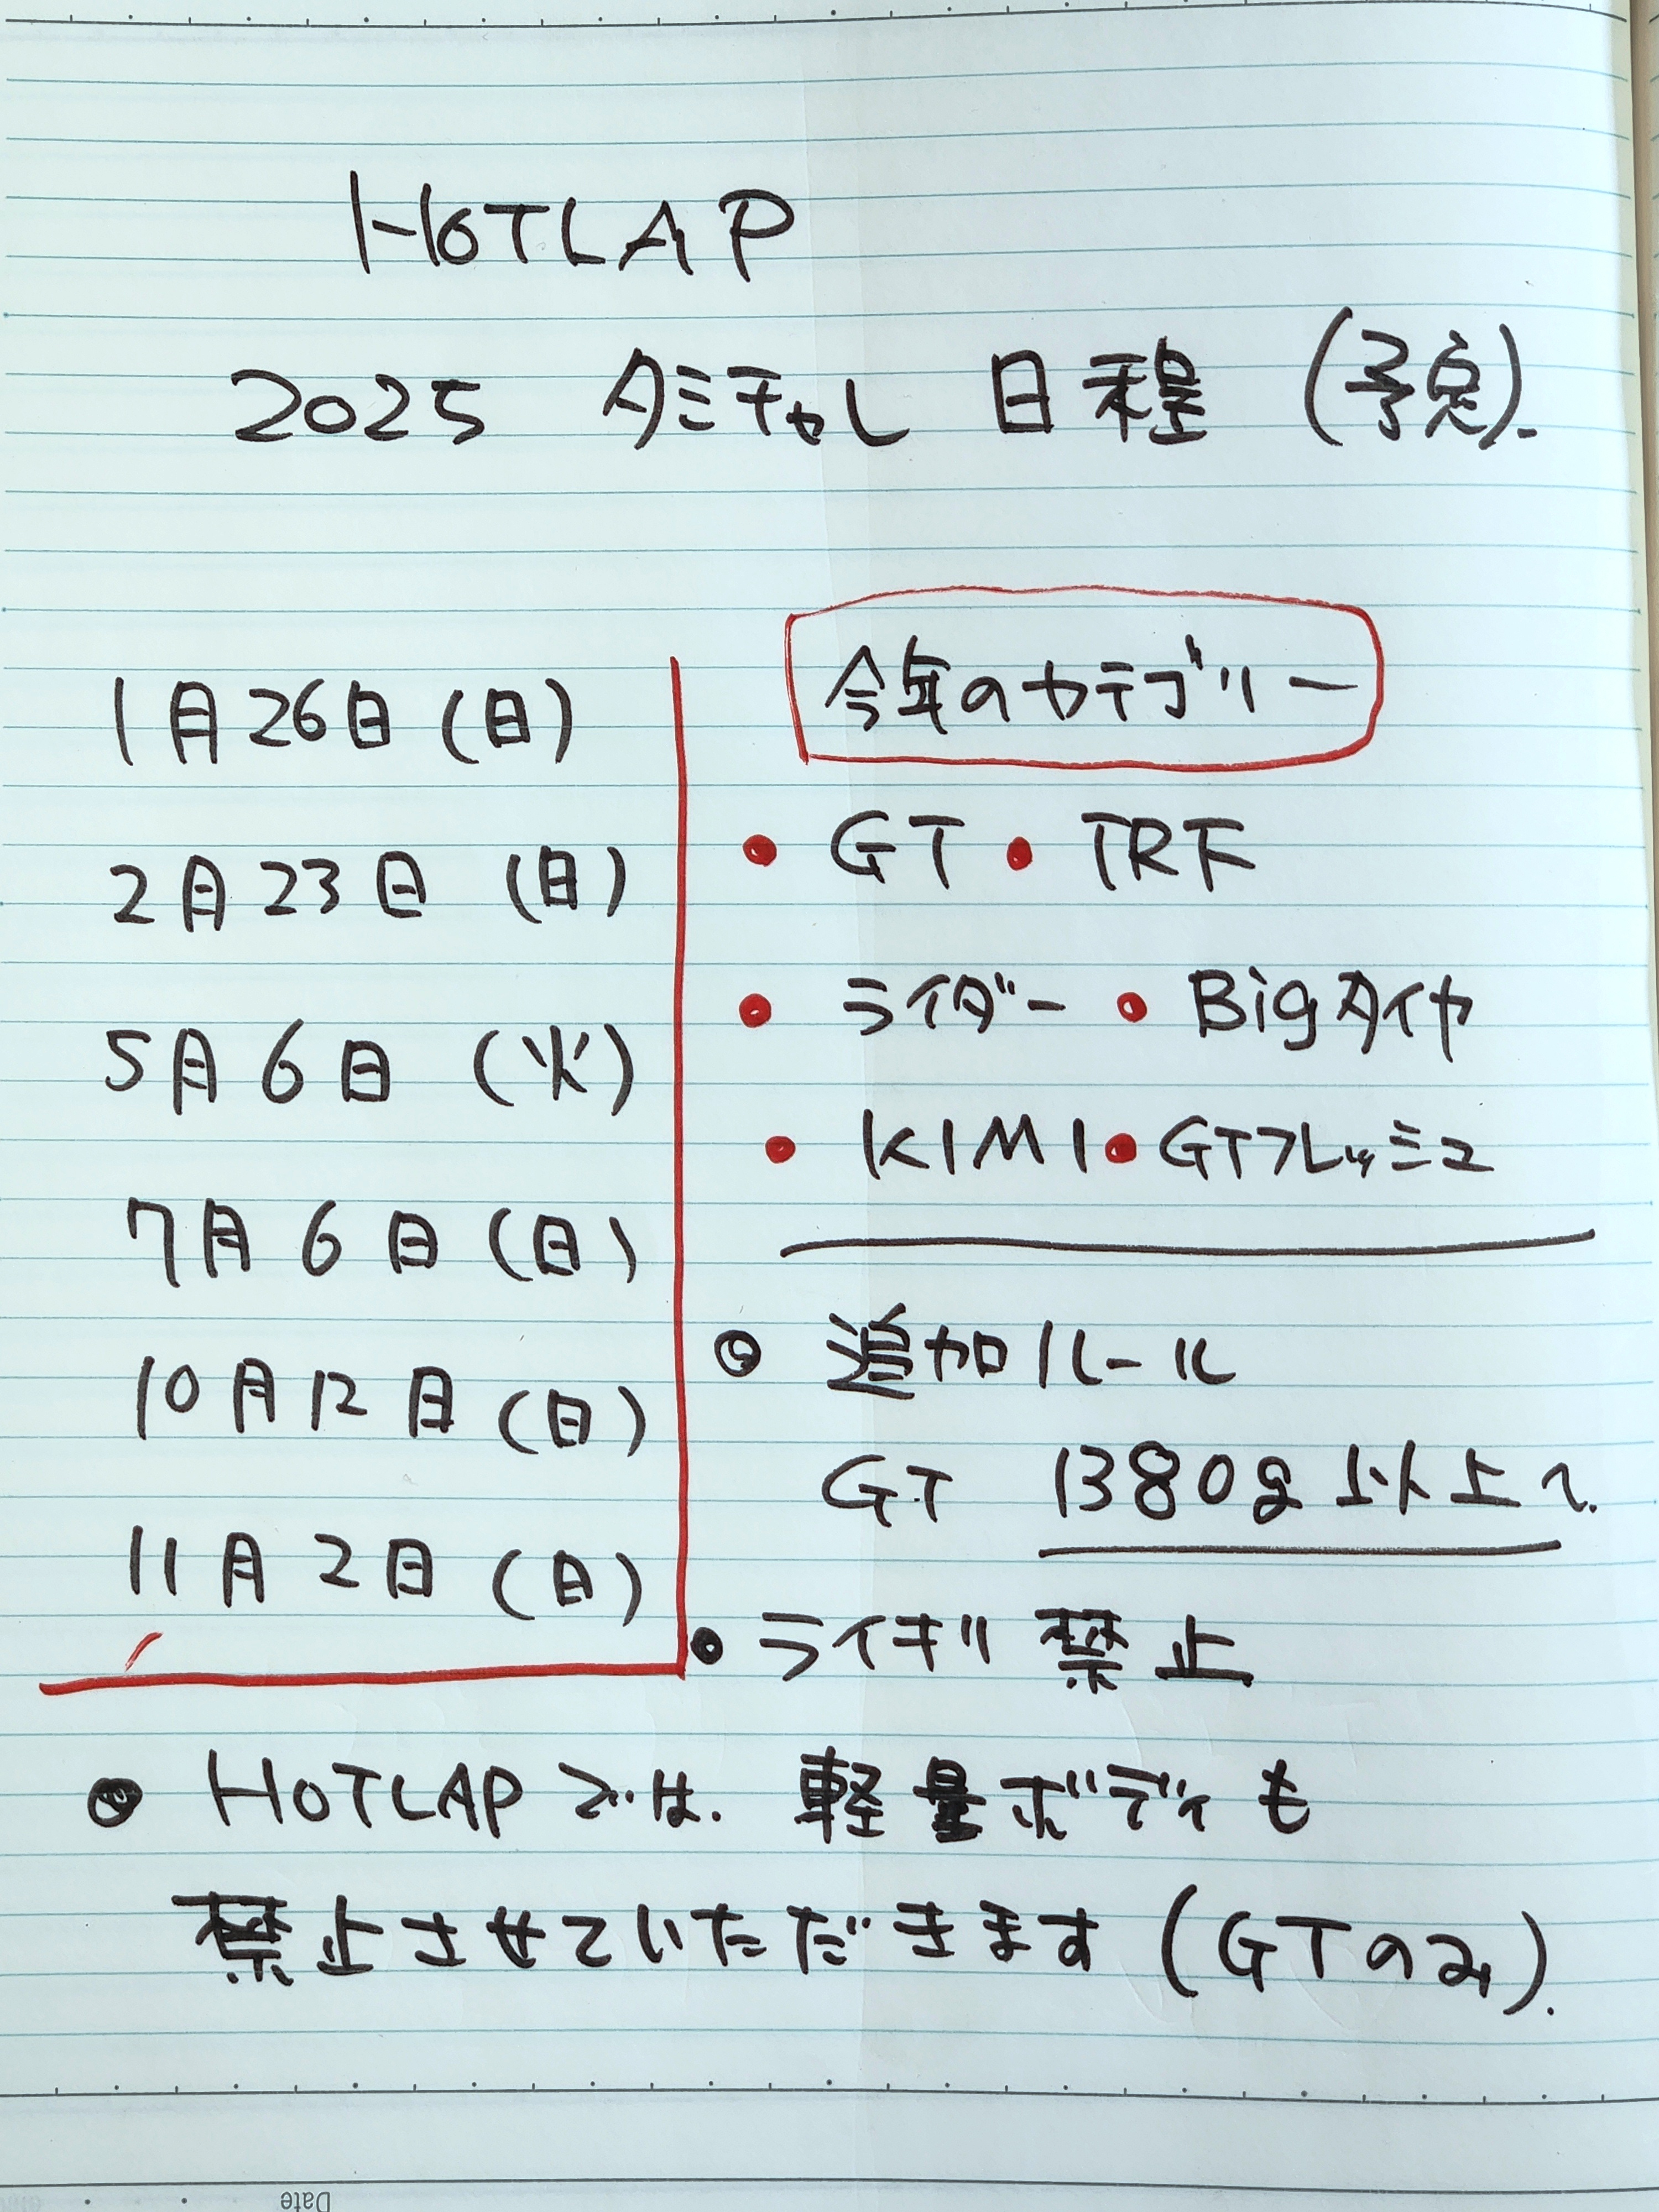 HOTLAP
2025 タミチャレ 日程 (予定).
1月26日 (日)
2月23日 (日)
5月6日 (火)
7月6日 (日)
10月12日 (日)
11月2日 (日)
今年のカテゴリー
• GT • TRF
• ライダー • Bigタイヤ
• KIMI • GTフレッシュ
• 追加ルール
GT 1380g以上へ.
• ライギリ 禁止
• HOTLAPでは. 軽量ボディも
禁止させていただきます (GTのみ).
Date